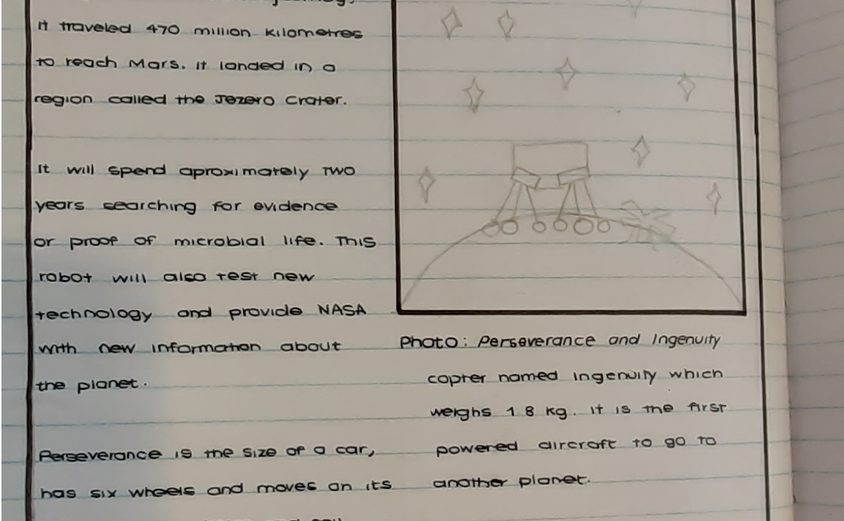 it traveled 470 million kilometres
to reach Mars. it landed in a
region called the Jezero Crater.
it will spend aproximately two
years searching for evidence
or proof of microbial life. This
robot will also test new
technology and provide NASA
with new information about
the planet.
Perseverance is the size of a car,
has six wheels and moves on its
Photo: Perseverance and Ingenuity
copter named Ingenuity which
weighs 1.8 kg. it is the first
powered aircraft to go to
another planet.